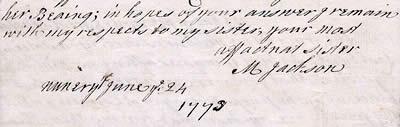 her. Beaing; in hopes of your answer I remain
with my respects to my sister, your most
affactnat sister
M Jackson
June ye 24
1773